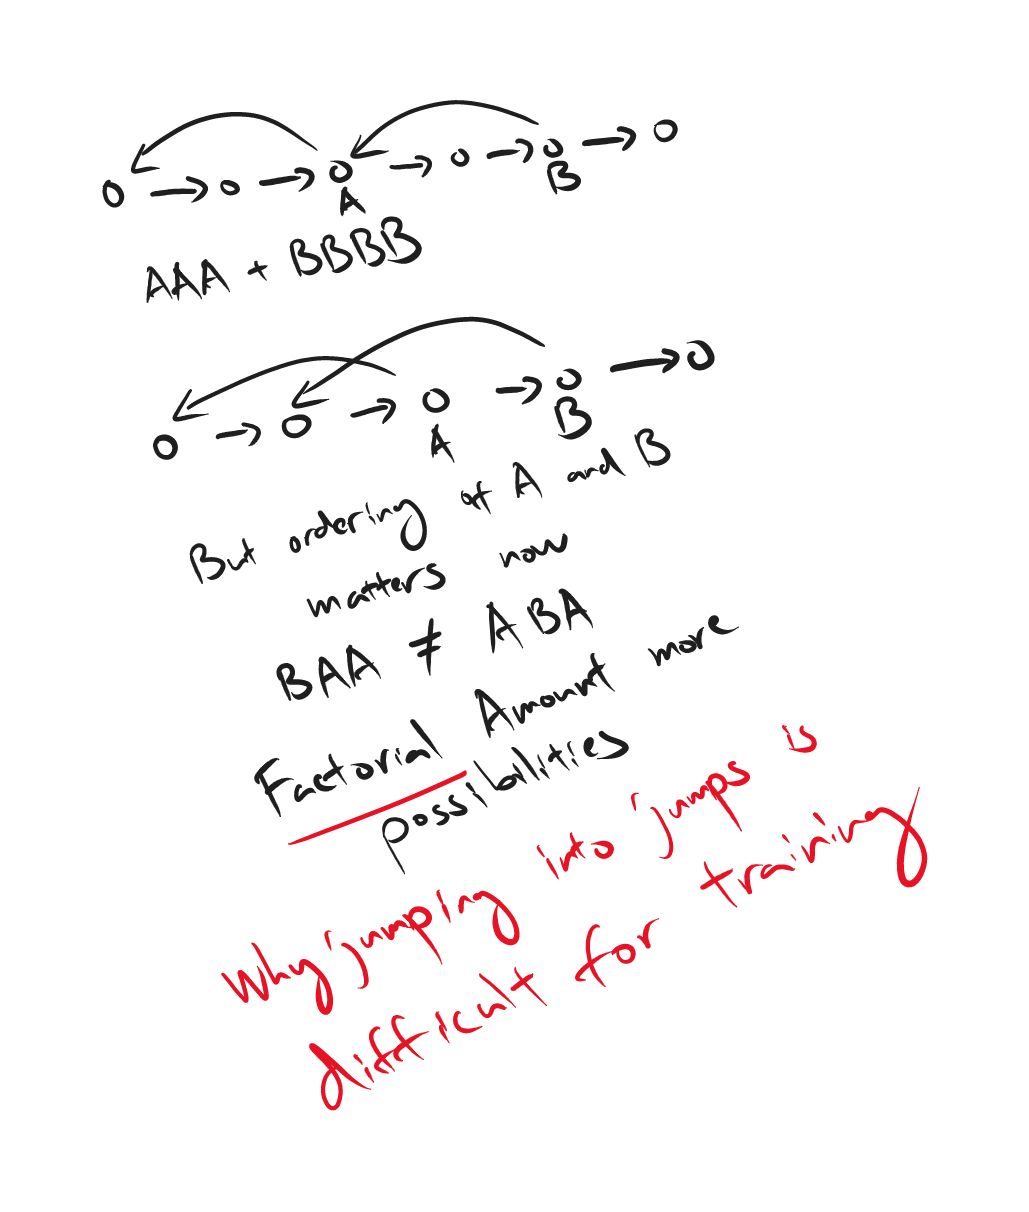 A
B
AAA + BBBB
A
B
But ordering of A and B
matters now
BAA ≠ ABA
Factorial Amount more
possibilities
Why jumping into jumps is
difficult for training